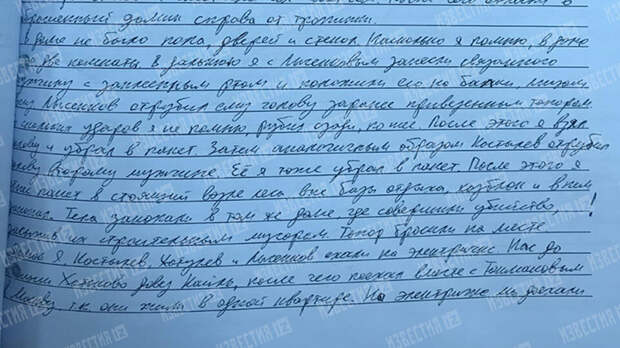 домик справа от тропинки.
В доме не было пола, дверей и стекол. Насколько я помню, в доме
две комнаты. В дальнюю я с Лысенковым занесли связанного
мужчину с заклеенным ртом и положили его на
Лысенков отрубил ему голову заранее привезенным топором.
ударов я не помню, рубил сзади, по шее. После этого я взял
голову и убрал в пакет. Затем аналогичным образом Костылев отрубил
голову второму мужчине. Её я тоже убрал в пакет. После этого я
пакет в стоящий возле леса вне базы отдыха, и в нем
Тела закопали в том же доме, где совершили убийство,
их строительным мусором. Топор бросили на месте,
Я, Костылев, и Лысенков ехали на электричке. Нас до
довез после чего поехал вместе с
Москву, т.к. они жили в одной квартире. На электричке мы доехали
ИЗВЕСТИЯ IZ